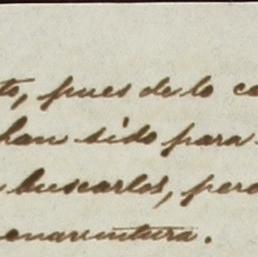 to, pues de lo co
han sido para
buscarlos, pero
enaventura.